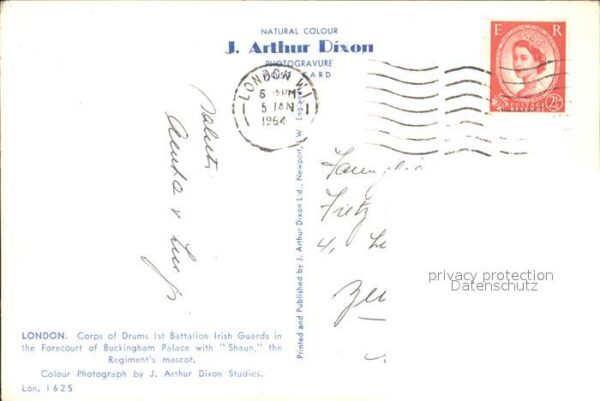 NATURAL COLOUR
J. Arthur Dixon
PHOTOGRAVURE
POST CARD
E R
2½
LONDON.W.1
6 PM
5 JAN
1964
Saluti
Printed and Published by J. Arthur Dixon Ltd., Newport, I.W. England
4,
privacy protection
Datenschutz
LONDON. Corps of Drums 1st Battalion Irish Guards in
the Forecourt of Buckingham Palace with "Shaun," the
Regiment's mascot.
Colour Photograph by J. Arthur Dixon Studios.
Lon. 1625